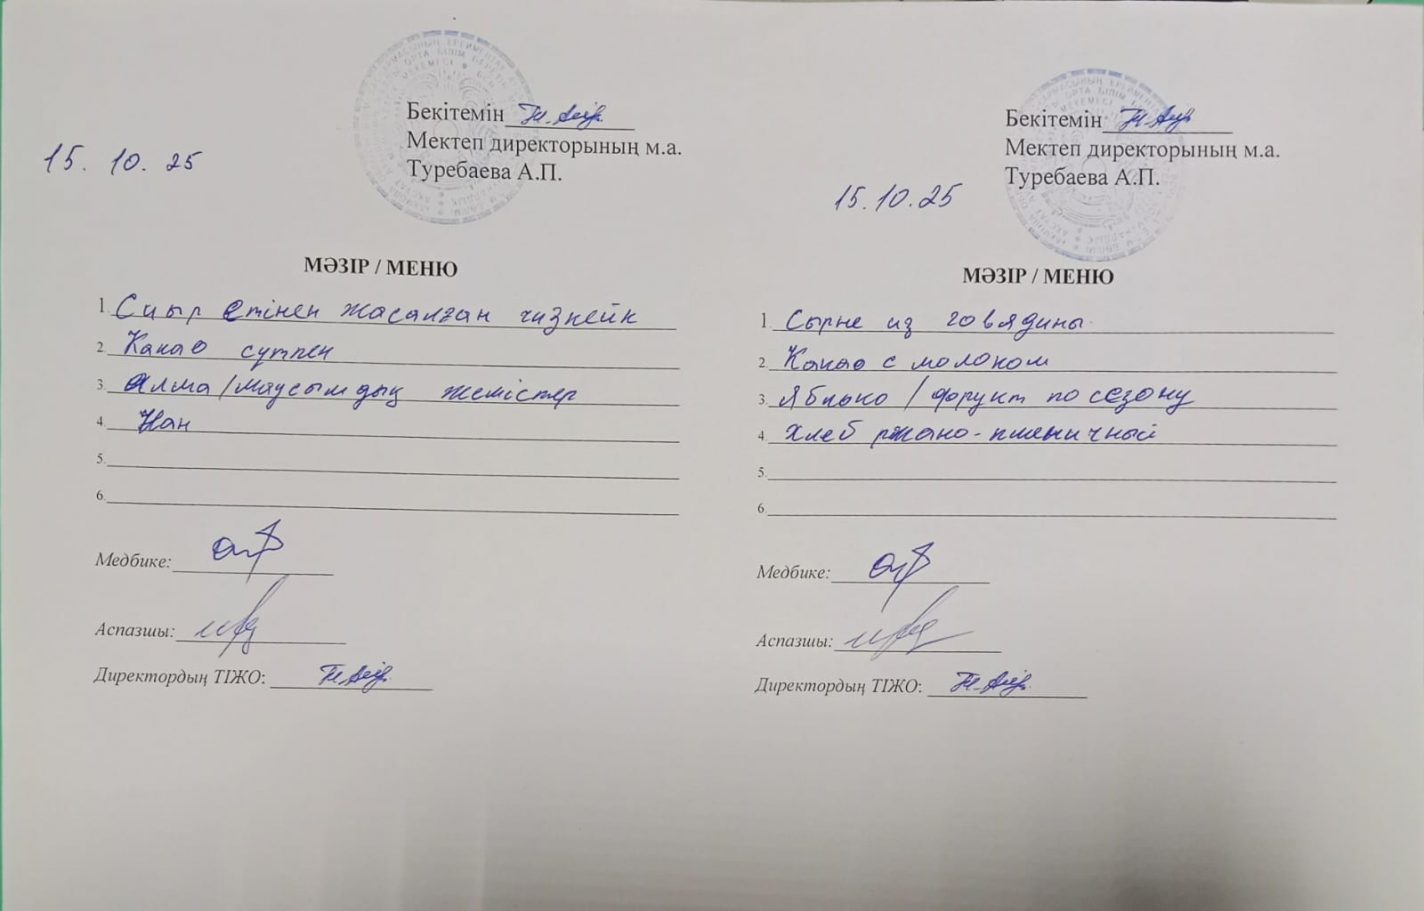 Бекітемін
Мектеп директорының м.а.
Туребаева А.П.
15. 10. 25
МӘЗІР / МЕНЮ
1. Сиыр етінен жасалған чизкейк
2. Какао сүтпен
3. Алма/маусымдық жемістер
4. Нан
5.
6.
Медбике:
Аспазшы:
Директордың ТІЖО:
Бекітемін
Мектеп директорының м.а.
Туребаева А.П.
15.10.25
МӘЗІР / МЕНЮ
1. Сырне из говядины
2. Какао с молоком
3. Яблоко / форукт по сезону
4. Хлеб ржано-пшеничный
5.
6.
Медбике:
Аспазшы:
Директордың ТІЖО: